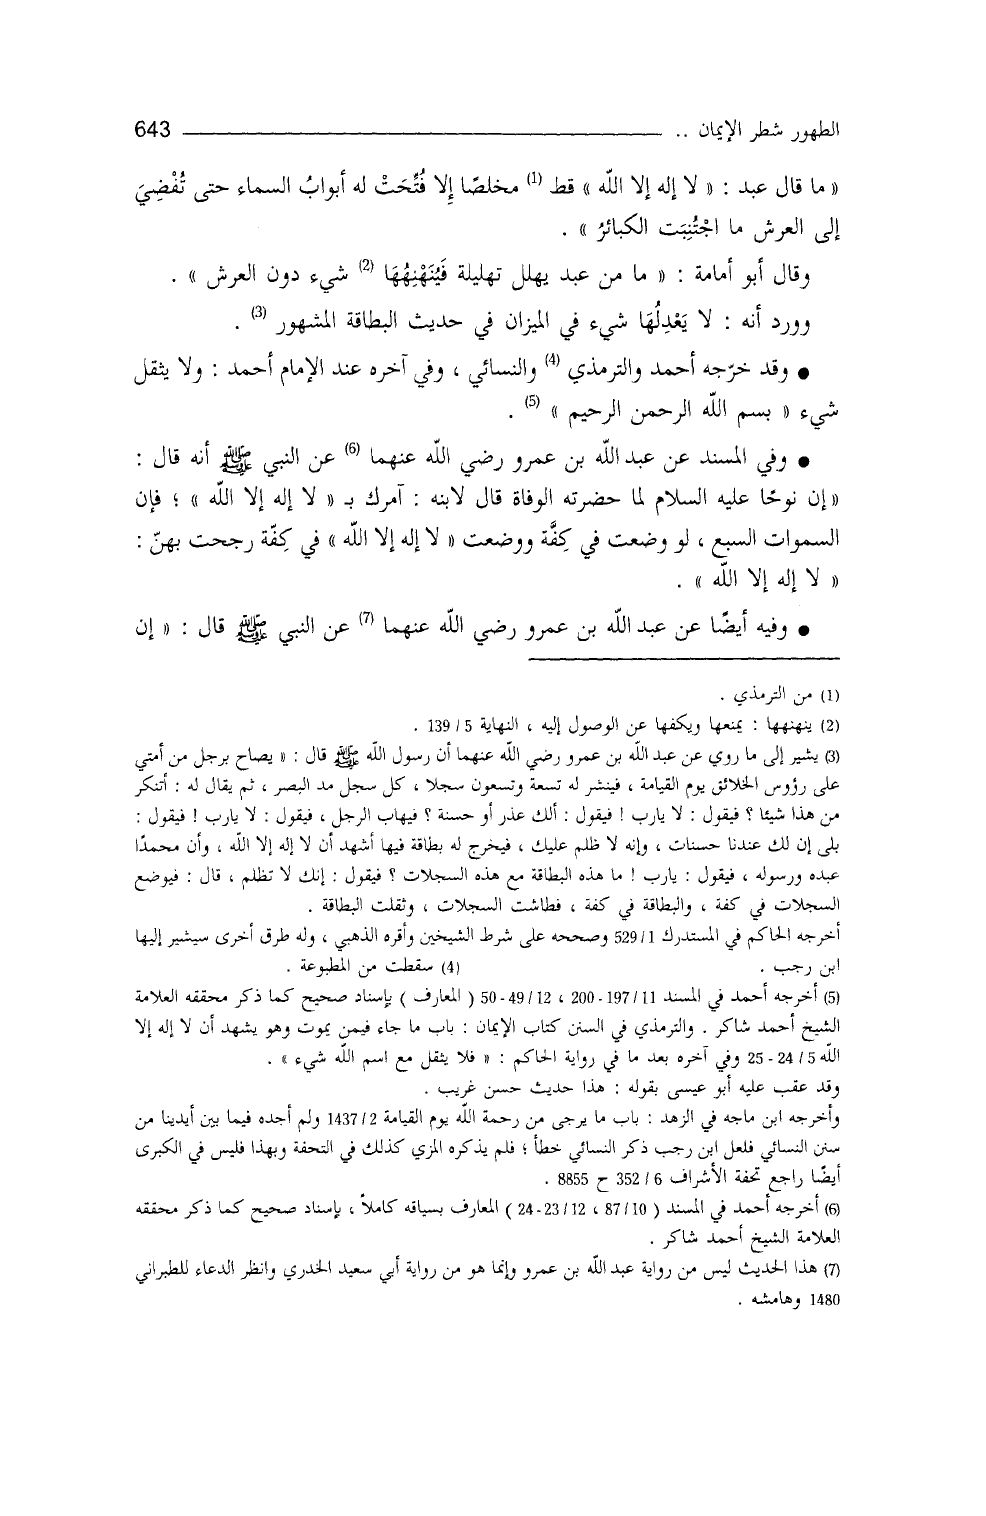 الطهور شطر الإيمان .. 643
« ما قال عبد : « لا إله إلا الله » قط (1) مخلصًا إِلا فُتِّحَتْ له أبوابُ السماء حتى تُفْضِيَ
إلى العرش ما اجْتُنِبَت الكبائرُ » .
وقال أبو أمامة : « ما من عبد يهلل تهليلة فَيُنَهْنِهُهَا (2) شيء دون العرش » .
وورد أنه : لا يَعْدِلُهَا شيء في الميزان في حديث البطاقة المشهور (3) .
● وقد خرّجه أحمد والترمذي (4) والنسائي ، وفي آخره عند الإمام أحمد : ولا يثقل
شيء « بسم الله الرحمن الرحيم » (5) .
● وفي المسند عن عبد الله بن عمرو رضي الله عنهما (6) عن النبي ﷺ أنه قال :
« إن نوحًا عليه السلام لما حضرته الوفاة قال لابنه : آمرك بـ « لا إله إلا الله » ؛ فإن
السموات السبع ، لو وضعت في كِفَّة ووضعت « لا إله إلا الله » في كِفّة رجحت بهنّ :
« لا إله إلا الله » .
● وفيه أيضًا عن عبد الله بن عمرو رضي الله عنهما (7) عن النبي ﷺ قال : « إن
(1) من الترمذي .
(2) ينهنهها : يمنعها ويكفها عن الوصول إليه ، النهاية 5 / 139 .
(3) يشير إلى ما روي عن عبد الله بن عمرو رضي الله عنهما أن رسول الله ﷺ قال : « يصاح برجل من أمتي
على رؤوس الخلائق يوم القيامة ، فينشر له تسعة وتسعون سجلا ، كل سجل مد البصر ، ثم يقال له : أتنكر
من هذا شيئا ؟ فيقول : لا يارب ! فيقول : ألك عذر أو حسنة ؟ فيهاب الرجل ، فيقول : لا يارب ! فيقول :
بلى إن لك عندنا حسنات ، وإنه لا ظلم عليك ، فيخرج له بطاقة فيها أشهد أن لا إله إلا الله ، وأن محمدًا
عبده ورسوله ، فيقول : يارب ! ما هذه البطاقة مع هذه السجلات ؟ فيقول : إنك لا تظلم ، قال : فيوضع
السجلات في كفة ، والبطاقة في كفة ، فطاشت السجلات ، وثقلت البطاقة .
أخرجه الحاكم في المستدرك 529/1 وصححه على شرط الشيخين وأقره الذهبي ، وله طرق أخرى سيشير إليها
ابن رجب . (4) سقطت من المطبوعة .
(5) أخرجه أحمد في المسند 197/11 - 200 ، 49/12 - 50 ( المعارف ) بإسناد صحيح كما ذكر محققه العلامة
الشيخ أحمد شاكر . والترمذي في السنن كتاب الإيمان : باب ما جاء فيمن يموت وهو يشهد أن لا إله إلا
الله 5 / 24 - 25 وفي آخره بعد ما في رواية الحاكم : « فلا يثقل مع اسم الله شيء » .
وقد عقب عليه أبو عيسى بقوله : هذا حديث حسن غريب .
وأخرجه ابن ماجه في الزهد : باب ما يرجى من رحمة الله يوم القيامة 2 / 1437 ولم أجده فيما بين أيدينا من
سنن النسائي فلعل ابن رجب ذكر النسائي خطأ ؛ فلم يذكره المزي كذلك في التحفة وبهذا فليس في الكبرى
أيضًا راجع تحفة الأشراف 6 / 352 ح 8855 .
(6) أخرجه أحمد في المسند ( 10 / 87 ، 12 / 23 - 24 ) المعارف بسياقه كاملاً ، بإسناد صحيح كما ذكر محققه
العلامة الشيخ أحمد شاكر .
(7) هذا الحديث ليس من رواية عبد الله بن عمرو وإنما هو من رواية أبي سعيد الخدري وانظر الدعاء للطبراني
1480 وهامشه .